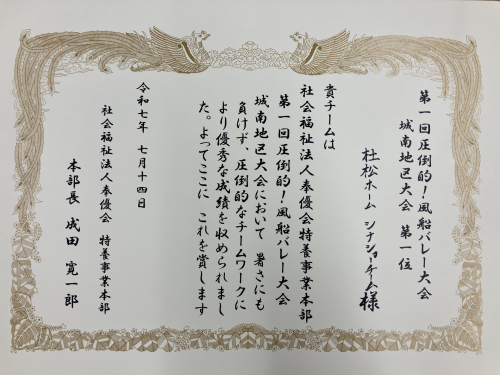 第一回圧倒的！風船バレー大会
城南地区大会 第一位
杜松ホーム シナジョーチーム様
貴チームは
社会福祉法人奉優会特養事業本部
第一回圧倒的！風船バレー大会
城南地区大会において 暑さにも
負けず、圧倒的なチームワークに
より優秀な成績を収められまし
た。よってここに これを賞します
令和七年 七月十四日
社会福祉法人奉優会 特養事業本部
本部長 成田 寛一郎